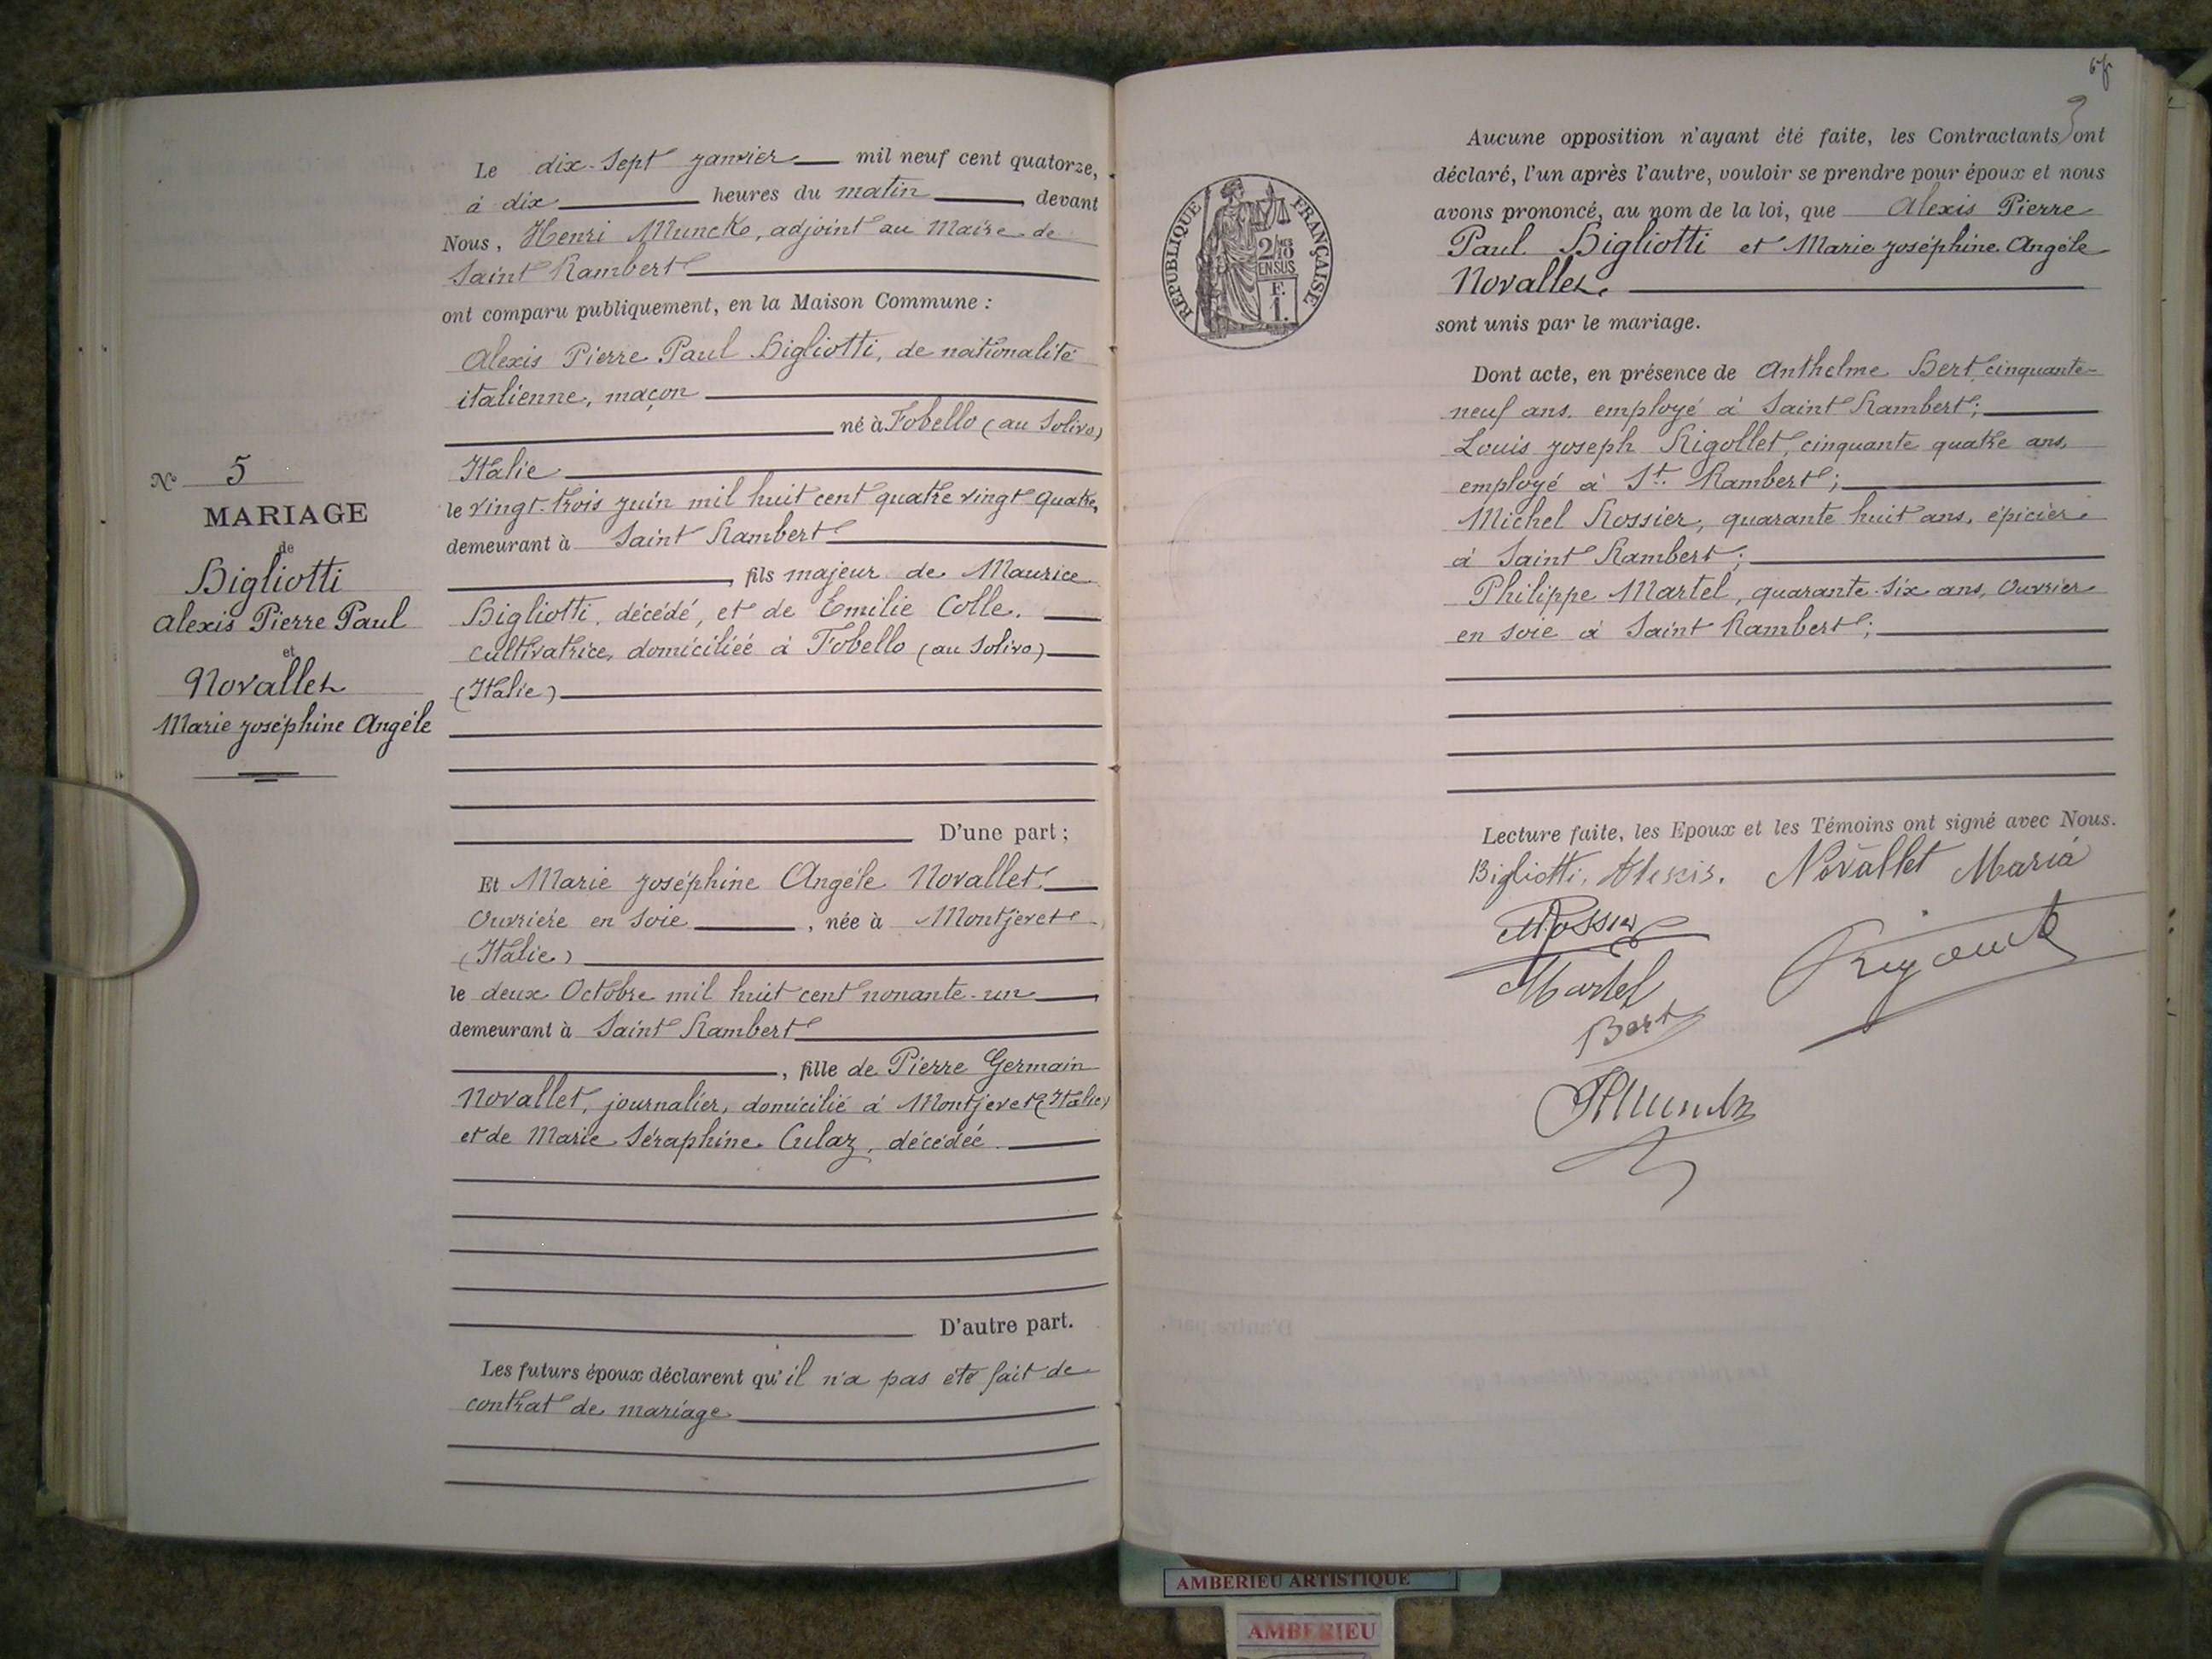 Le dix-sept janvier mil neuf cent quatorze,
à dix heures du matin, devant
Nous, Henri Munck, adjoint au Maire de
Saint Rambert
ont comparu publiquement, en la Maison Commune :
Alexis Pierre Paul Bigliotti, de nationalité
italienne, maçon
né à Fobello (au Solivo)
Italie
le vingt-trois juin mil huit cent quatre vingt quatre,
demeurant à Saint Rambert
, fils majeur de Maurice
Bigliotti, décédé, et de Emilie Colle,
cultivatrice, domiciliéé à Fobello (au Solivo)
(Italie)
D'une part ;
Et Marie Joséphine Angéle Novallet
Ouvriére en soie, née à Montjevet
(Italie)
le deux Octobre mil huit cent nonante-un
demeurant à Saint Rambert
, fille de Pierre Germain
Novallet, journalier, domicilié à Montjevet (Italie)
et de Marie Séraphine Culaz, décédéé
D'autre part.
Les futurs époux déclarent qu'il n'a pas été fait de
contrat de mariage
N° 5
MARIAGE
de
Bigliotti
Alexis Pierre Paul
et
Novallet
Marie Joséphine Angéle
RÉPUBLIQUE FRANÇAISE
2/10
EN SUS
F.
1.
3
Aucune opposition n'ayant été faite, les Contractants ont
déclaré, l'un après l'autre, vouloir se prendre pour époux et nous
avons prononcé, au nom de la loi, que Alexis Pierre
Paul Bigliotti et Marie Joséphine Angéle
Novallet.
sont unis par le mariage.
Dont acte, en présence de Anthelme Bert, cinquante-
neuf ans, employé à Saint Rambert ;
Louis Joseph Rigollet, cinquante quatre ans,
employé à St. Rambert ;
Michel Rossier, quarante huit ans, épicier
à Saint Rambert ;
Philippe Martel, quarante-six ans, Ouvrier
en soie à Saint Rambert ;
Lecture faite, les Epoux et les Témoins ont signé avec Nous.
Bigliotti, Alexis. Novallet Maria
M Rossier
Martel
Bert
HMunck
AMBERIEU ARTISTIQUE
AMBERIEU